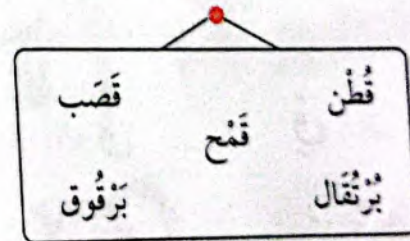 قُطْن قَصَب
قَمْح
بُرْتُقَال بَرْقُوق